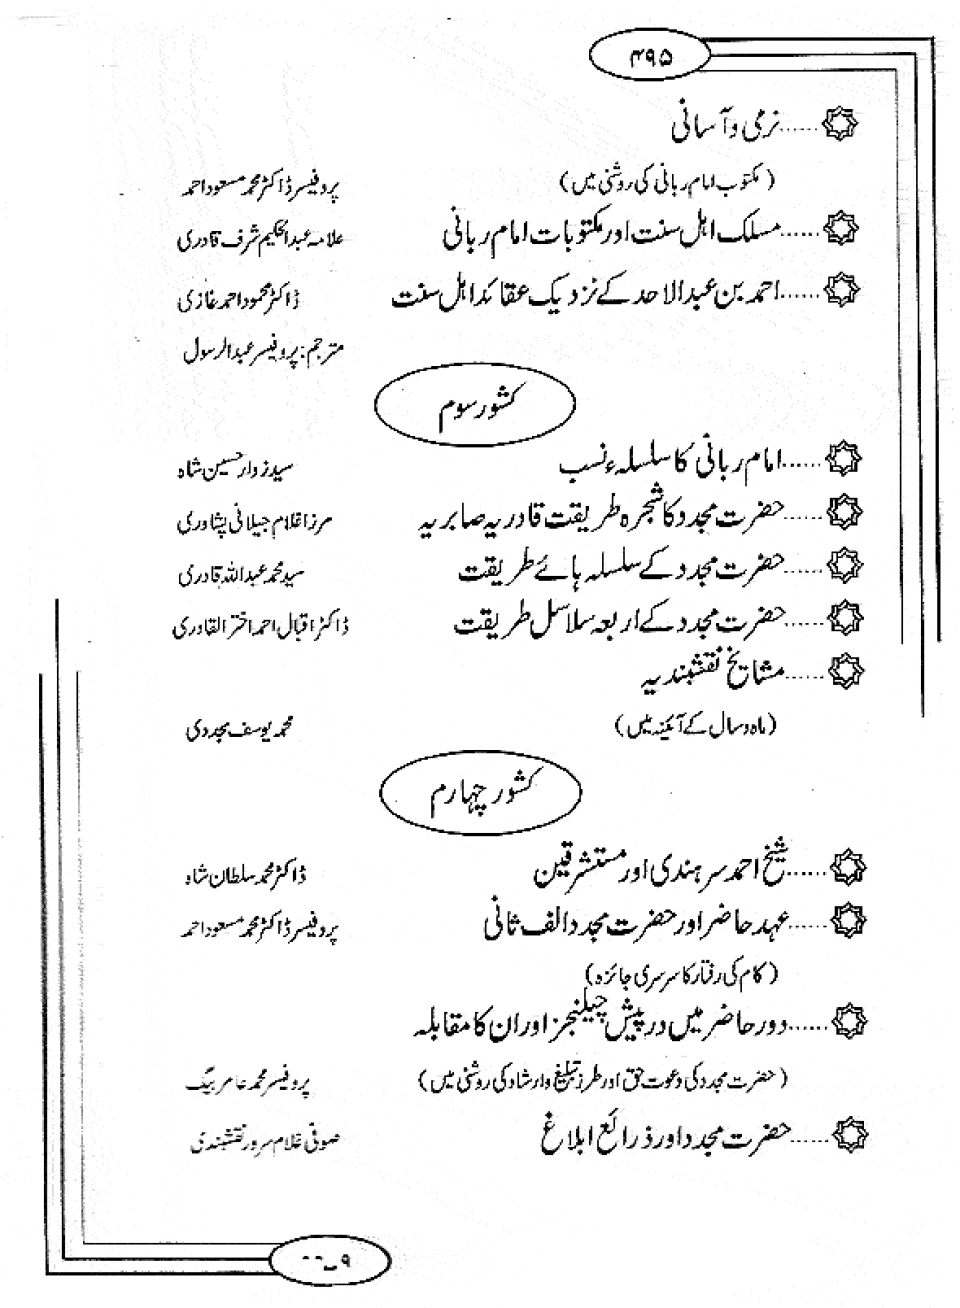 ۴۹۵
......نرمی و آسانی
(مکتوب امام ربانی کی روشنی میں) پروفیسر ڈاکٹر محمد مسعود احمد
......مسلک اہل سنت اور مکتوبات امام ربانی علامہ عبدالحکیم شرف قادری
......احمد بن عبدالاحد کے نزدیک عقائد اہل سنت ڈاکٹر محمود احمد غازی
مترجم: پروفیسر عبدالرسول
کشور سوم
......امام ربانی کا سلسلہء نسب سید زوار حسین شاہ
......حضرت مجدد کا شجرہ طریقت قادریہ صابریہ مرزا غلام جیلانی پشاوری
......حضرت مجدد کے سلسلہ ہائے طریقت سید محمد عبداللہ قادری
......حضرت مجدد کے اربعہ سلاسل طریقت ڈاکٹر اقبال احمد اختر القادری
......مشایخ نقشبندیہ
(ماہ و سال کے آئینہ میں) محمد یوسف مجددی
کشور چہارم
......شیخ احمد سرہندی اور مستشرقین ڈاکٹر محمد سلطان شاہ
......عہد حاضر اور حضرت مجدد الف ثانی پروفیسر ڈاکٹر محمد مسعود احمد
(کام کی رفتار کا سرسری جائزہ)
......دور حاضر میں درپیش چیلنجز اور ان کا مقابلہ
(حضرت مجدد کی دعوت حق اور طرز تبلیغ وارشاد کی روشنی میں) پروفیسر محمد عامر بیگ
......حضرت مجدد اور ذرائع ابلاغ صوفی غلام سرور نقشبندی